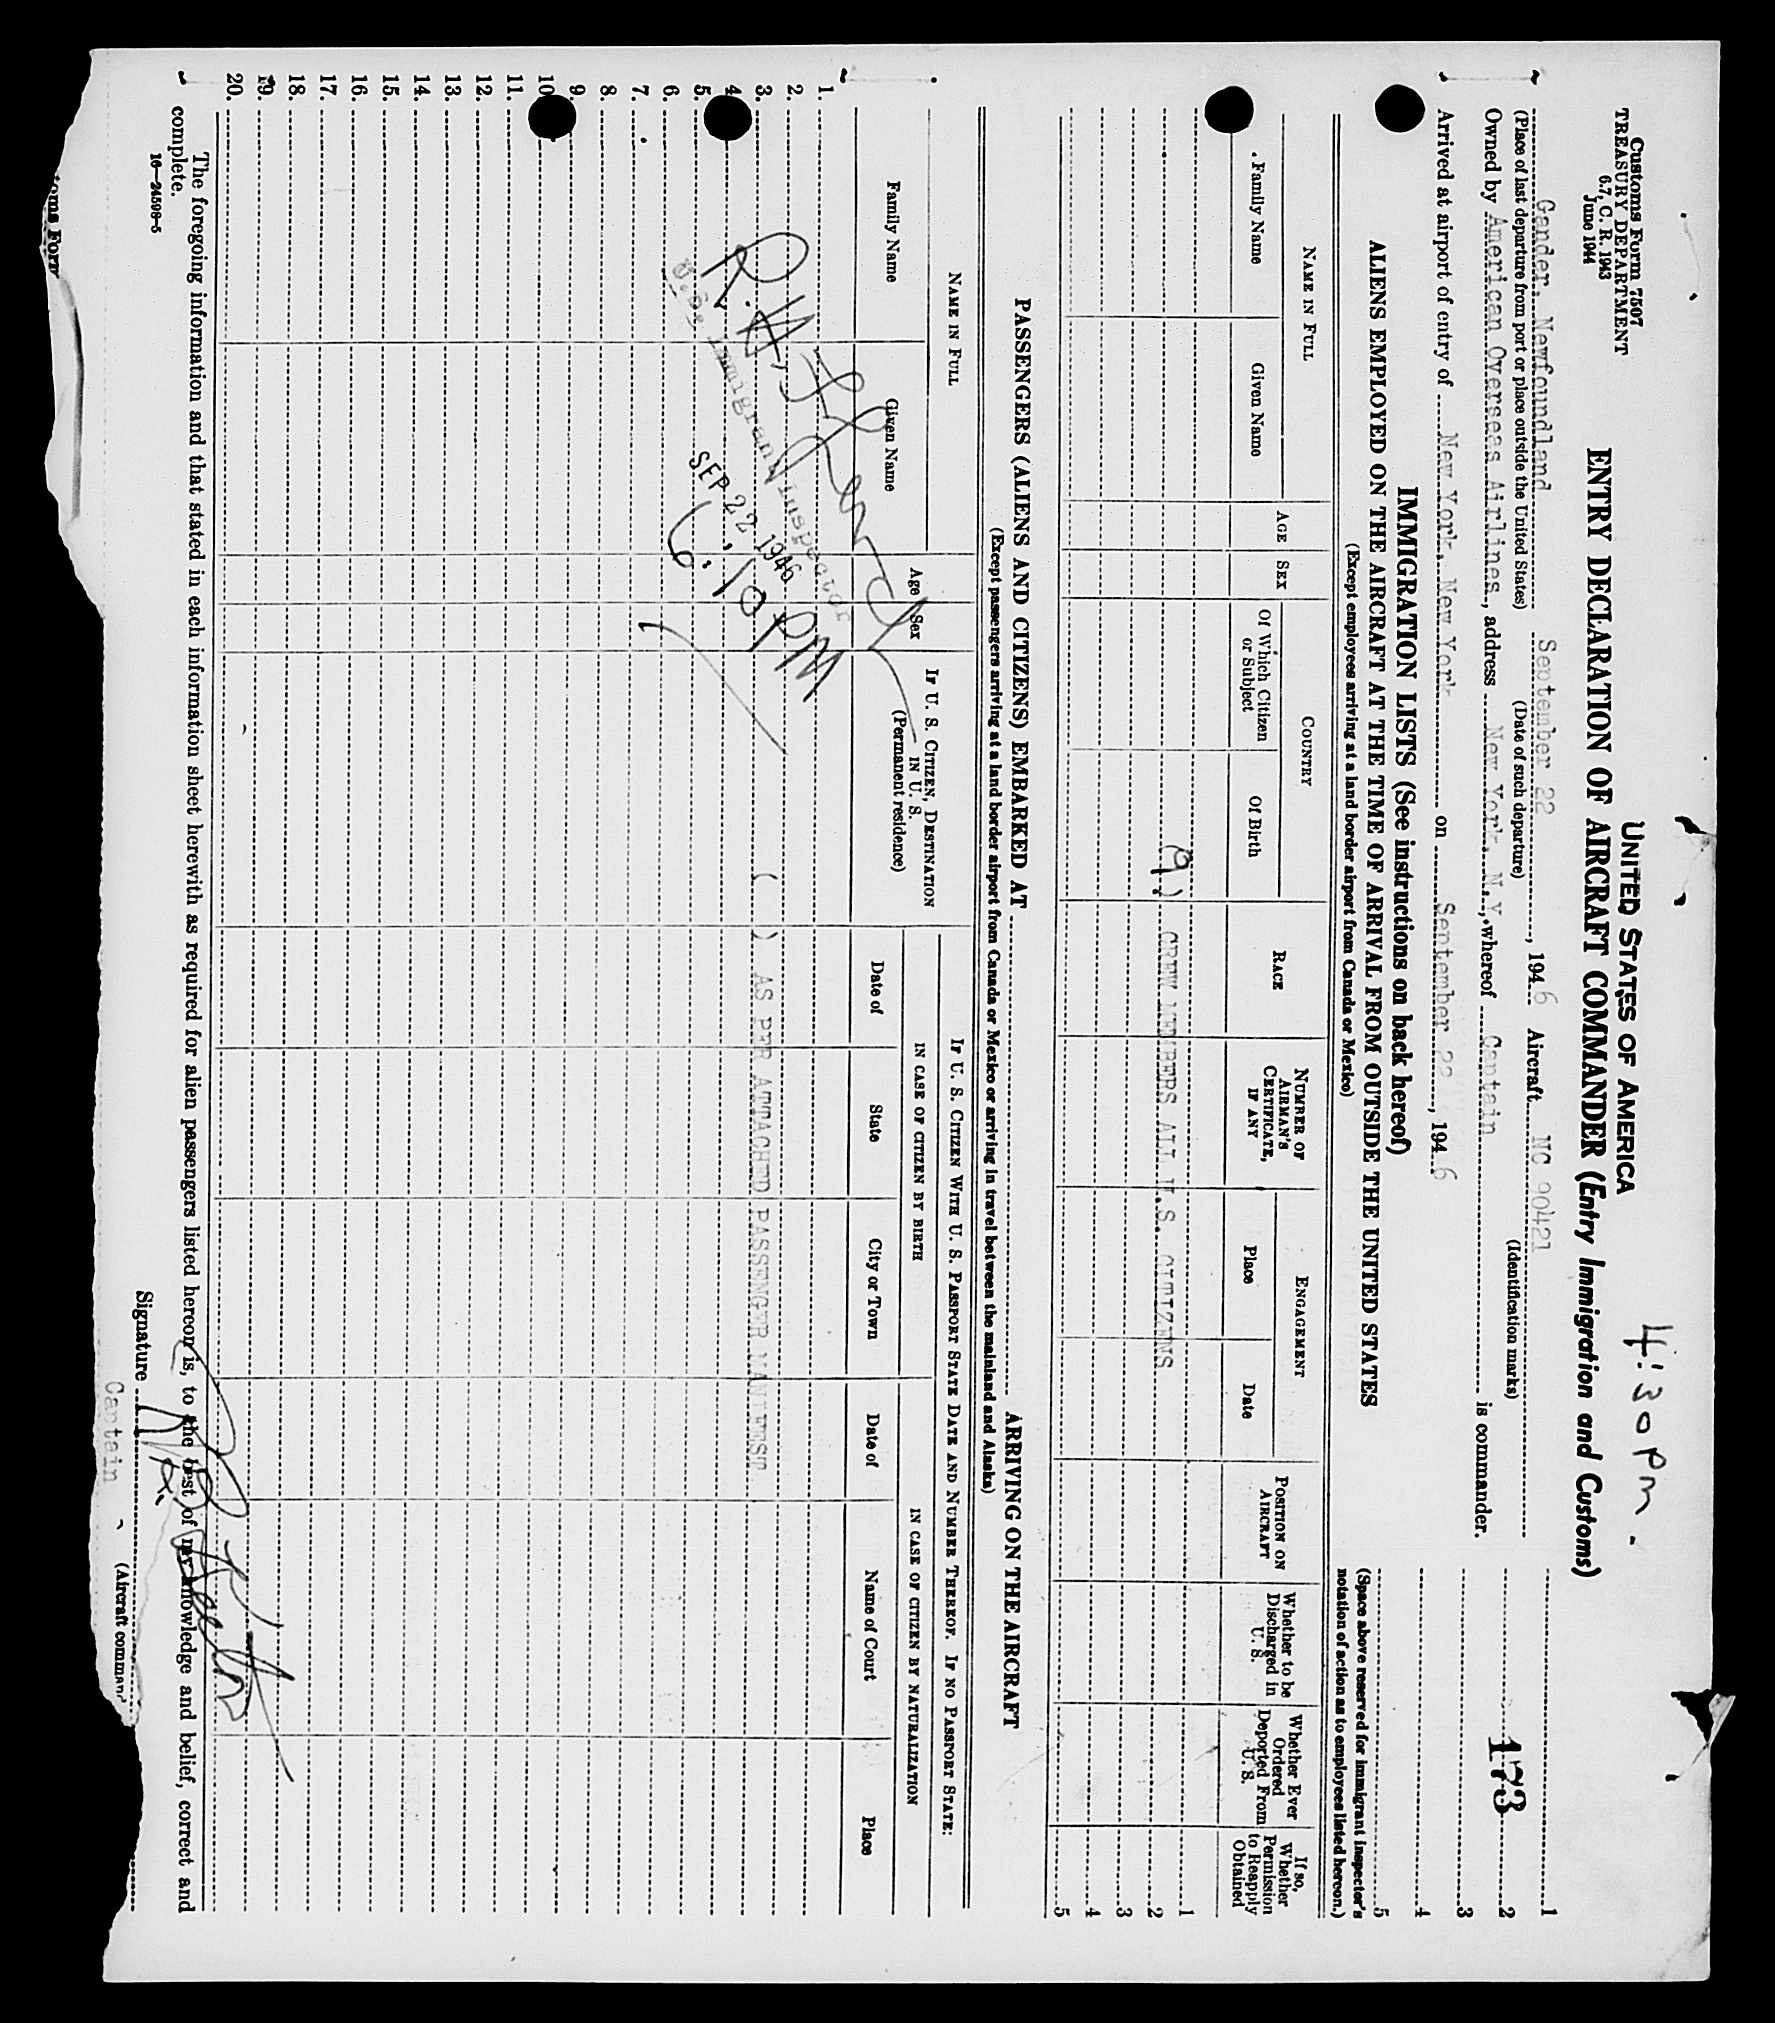 Customs Form 7507
TREASURY DEPARTMENT
6.7, C. R. 1943
June 1944
UNITED STATES OF AMERICA
4:30 pm.
ENTRY DECLARATION OF AIRCRAFT COMMANDER (Entry Immigration and Customs)
Gander, Newfoundland September 22, 1946 Aircraft NC 90421
(Place of last departure from port or place outside the United States) (Date of such departure) (Identification marks)
Owned by American Overseas Airlines, address New York, N.Y., whereof Captain is commander.
Arrived at airport of entry of New York, New York on September 22, 1946
1
2
3
4
5
173
(Space above reserved for immigrant inspector's notation of action as to employees listed hereon.)
IMMIGRATION LISTS (See instructions on back hereof)
ALIENS EMPLOYED ON THE AIRCRAFT AT THE TIME OF ARRIVAL FROM OUTSIDE THE UNITED STATES
(Except employees arriving at a land border airport from Canada or Mexico)
NAME IN FULL
Family Name
Given Name
AGE
SEX
COUNTRY
Of Which Citizen or Subject
Of Birth
RACE
NUMBER OF AIRMAN'S CERTIFICATE, IF ANY
ENGAGEMENT
Place
Date
POSITION ON AIRCRAFT
Whether to be Discharged in U. S.
Whether Ever Ordered Deported From U. S.
If so, Whether Permission to Reapply Obtained
1
(9) CREW MEMBERS ALL U.S. CITIZENS 2
3
4
5
PASSENGERS (ALIENS AND CITIZENS) EMBARKED AT ARRIVING ON THE AIRCRAFT
(Except passengers arriving at a land border airport from Canada or Mexico or arriving in travel between the mainland and Alaska)
NAME IN FULL
Family Name
Given Name
Age
Sex
IF U. S. CITIZEN, DESTINATION IN U. S.
(Permanent residence)
IF U. S. CITIZEN WITH U. S. PASSPORT STATE DATE AND NUMBER THEREOF. IF NO PASSPORT STATE:
IN CASE OF CITIZEN BY BIRTH
IN CASE OF CITIZEN BY NATURALIZATION
Date of
State
City or Town
Date of
Name of Court
Place
1.
2.
3. ( ) AS PER ATTACHED PASSENGER MANIFEST
4.
5.
6.
7.
8.
9.
10.
11.
12.
13.
14.
15.
16.
17.
18.
19.
20.
R.W.
U.S. Immigrant Inspector
SEP 22 1946
6:10 PM
The foregoing information and that stated in each information sheet herewith as required for alien passengers listed hereon is, to the best of my knowledge and belief, correct and
complete.
16—24598-5
Signature
Captain
(Aircraft comman
toms Form